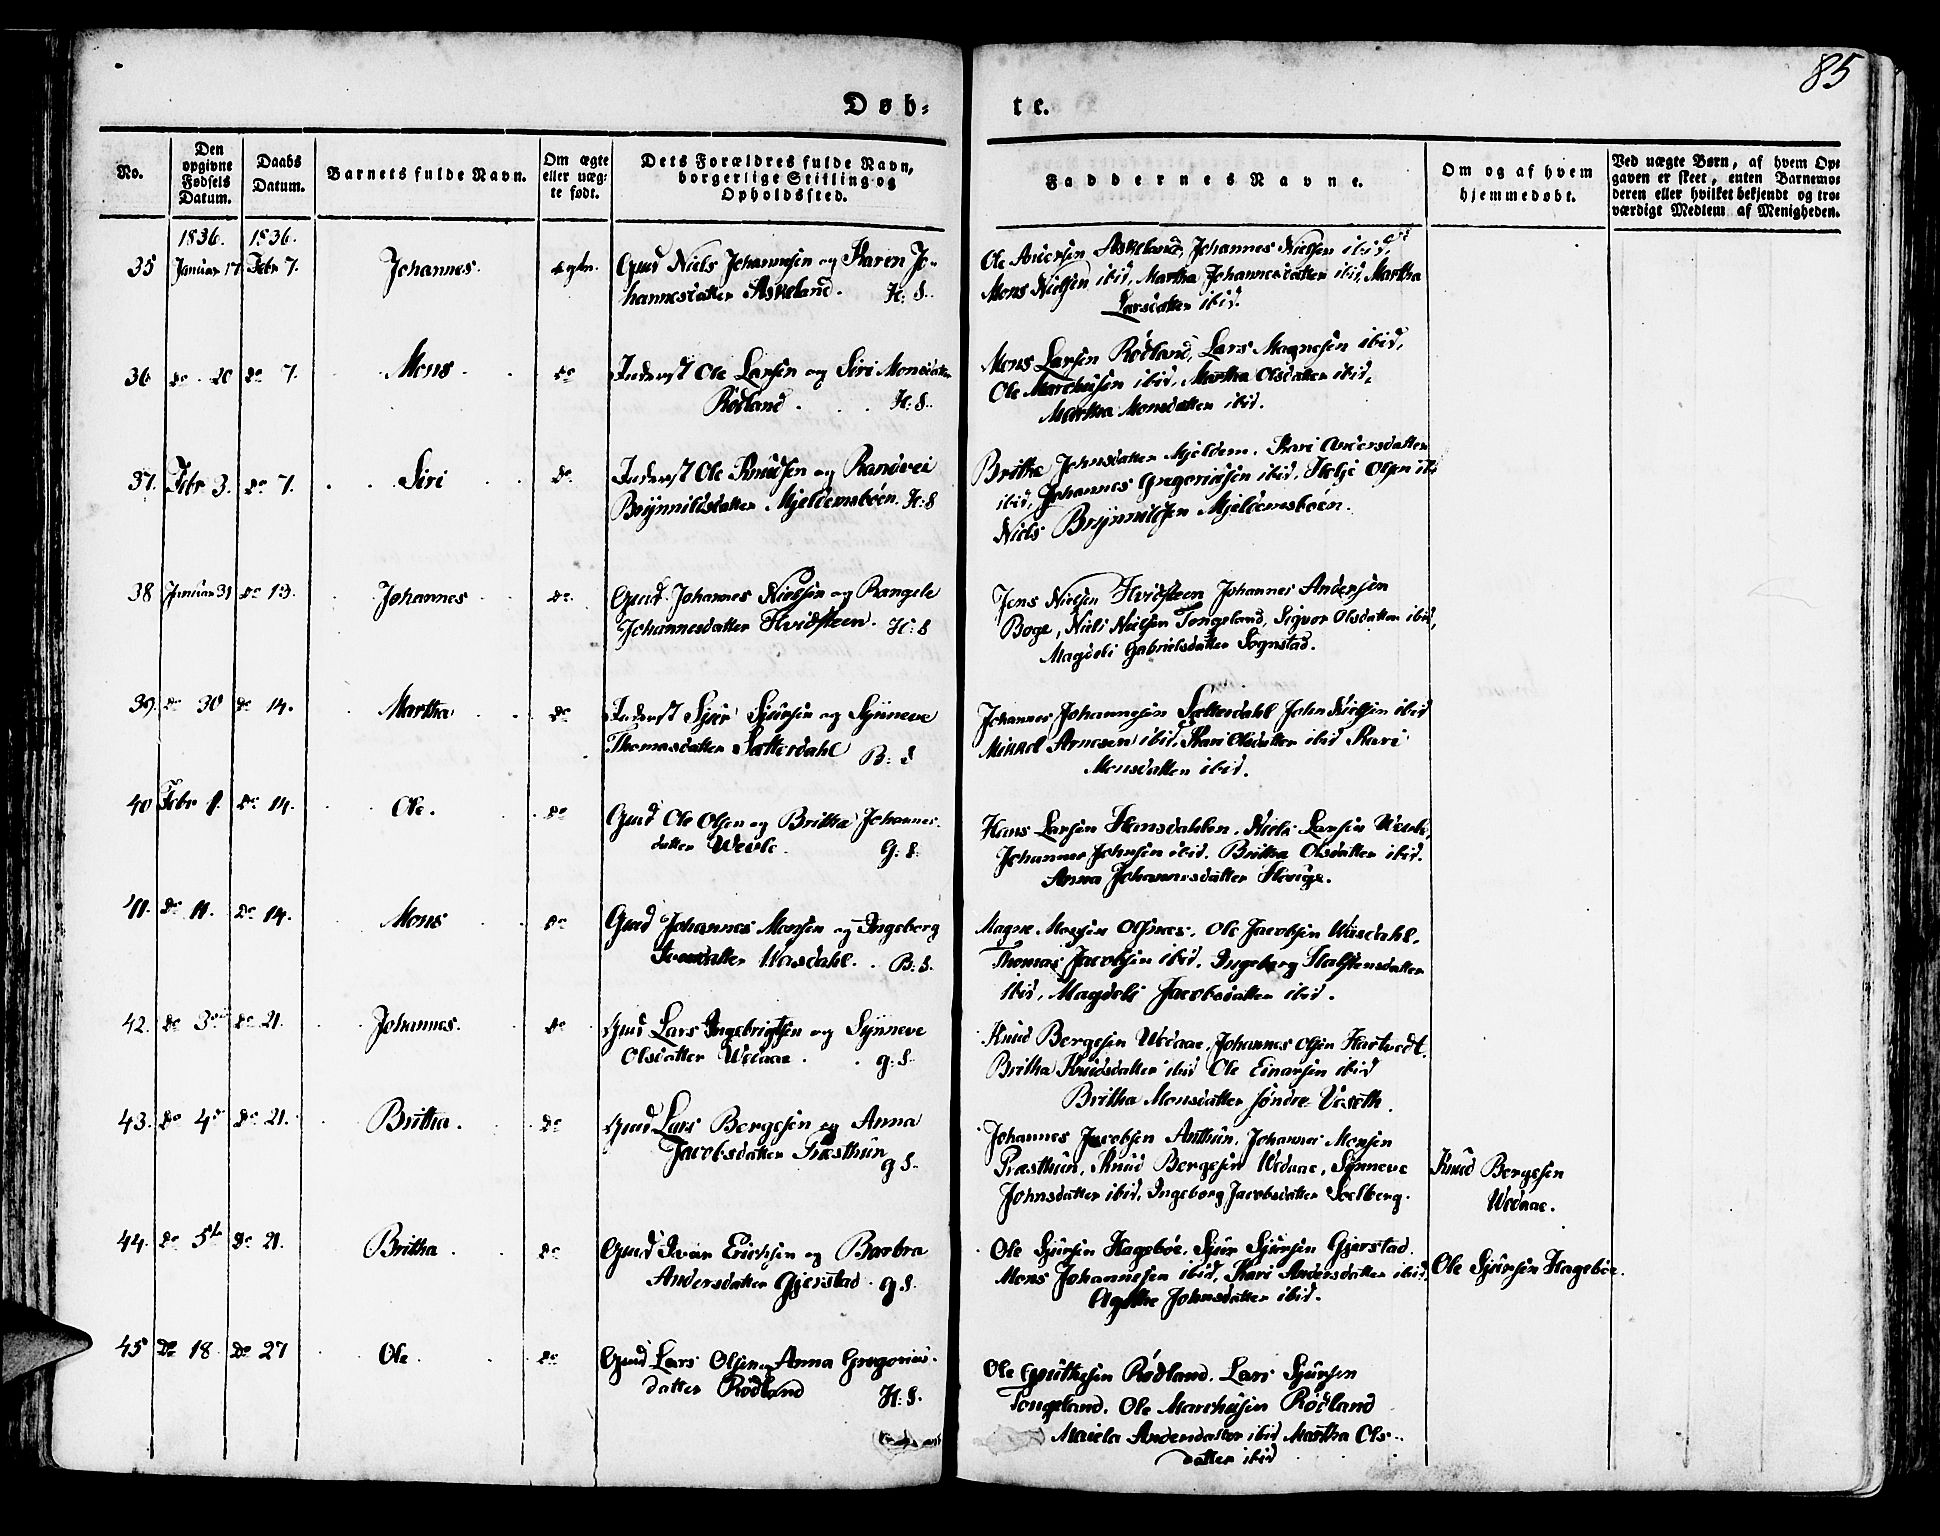 85
Døb-
te.
No.
Den opgivne Fødsels Datum.
Daabs Datum.
Barnets fulde Navn.
Om ægte eller uægte født.
Dets Forældres fulde Navn, borgerlige Stilling og Opholdssted.
Faddernes Navne.
Om og af hvem hjemmedøbt.
Ved uægte Børn, af hvem Opgaven er skeet, enten Barnemoderen eller hvilket bekjendt og troværdigt Medlem af Menigheden.
1836. 1836.
35 Januar 17 Febr 7. Johannes. ægte. Gmd Niels Johannesen og Karen Jo-
hannesdatter Askeland. H: S.
Ole Andersen Askeland, Johannes Nielsen ibid,
Mons Nielsen ibid, Martha Johannesdatter ibid, Martha
Larsdatter ibid.
36 do 20 do 7. Mons do Inderst Ole Larsen og Siri Monsdatter
Rødland. H: S.
Mons Larsen Rødland, Lars Magnesen ibid,
Ole Marchusen ibid, Martha Olsdatter ibid,
Martha Monsdatter ibid.
37. Febr 3. do 7. Siri do Inderst Ole Knudsen og Randvei
Brÿnnildsdatter Mjeldemsbøen. H: S
Britha Johnsdatter Mjeldem. Kari Andersdatter
ibid, Johannes Gregoriusen ibid, Helje Olsen ibi
Niels Brÿnnildsen Mjeldemsbøen.
38 Januar 31 do 13. Johannes do. Gmd Johannes Nielsen og Rangele
Johannesdatter Hvidsteen. H: S
Jens Nielsen Hvidsteen Johannes Andersen
Boge, Niels Nielsen Tongeland, Sigvor Olsdatter ibid,
Magdeli Gabrielsdatter Sognstad.
39. do 30 do 14. Martha do Inderst Sjur Sjursen og Sÿnneve
Thomasdatter Sætterdahl B: S
Johannes Johannesen Sætterdahl John Nielsen ibid
Mikkel Arnesen ibid. Kari Olsdatter ibid Kari
Monsdatter ibid.
40 Febr 1. do 14. Ole. do Gmd Ole Olsen og Britha Johannes-
datter Wevle. G: S.
Hans Larsen Hansdahlen. Niels Larsen Wevle,
Johannes Johnsen ibid. Britha Olsdatter ibid.
Anna Johannesdatter Houge.
41. do 11. do 14. Mons do Gmd Johannes Monsen og Ingeborg
Iversdatter Wasdahl. B: S.
Magne Olsnes. Ole Jacobsen Wasdahl.
Thomas Jacobsen ibid. Ingeborg Halstensdatter
ibid, Magdeli Jacobsdatter ibid.
42. do 3 do 21. Johannes. do Gmd Lars Ingebrigtsen og Sÿnneve
Olsdatter Wedaae. g: S.
Knud Bergesen Wedaae, Johannes Olsen Hartvedt.
Britha Knudsdatter ibid Ole Einarsen ibid
Britha Monsdatter søndre Væseth.
43. do 4 do 21. Britha. do Gmd Lars Bergesen og Anna
Jacobsdatter Præsthun g S.
Johannes Jacobsen Anthun, Johannes Monsen
Præsthun. Knud Bergesen Wedaae, Sÿnneve
Johnsdatter ibid, Ingeborg Jacobsdatter Soelberg.
Knud Bergesen
Wedaae.
44. do 5 do 21. Britha. do Gmd Iver Erichsen og Barbra
Andersdatter Gjerstad. g S.
Ole Sjursen Hagebøe. Sjur Sjursen Gjerstad.
Mons Johannesen ibid, Kari Andersdatter ibid,
Agathe Johnsdatter ibid.
Ole Sjursen Hagebøe.
45 do 18. do 27 Ole. do Gmd Lars Olsen og Anna Gregorius-
datter Rødland H: S.
Ole Gjuthesen Rødland. Lars Sjursen
Tongeland. Ole Marchusen Rødland
Andersdatter ibid Martha Ols-
datter ibid